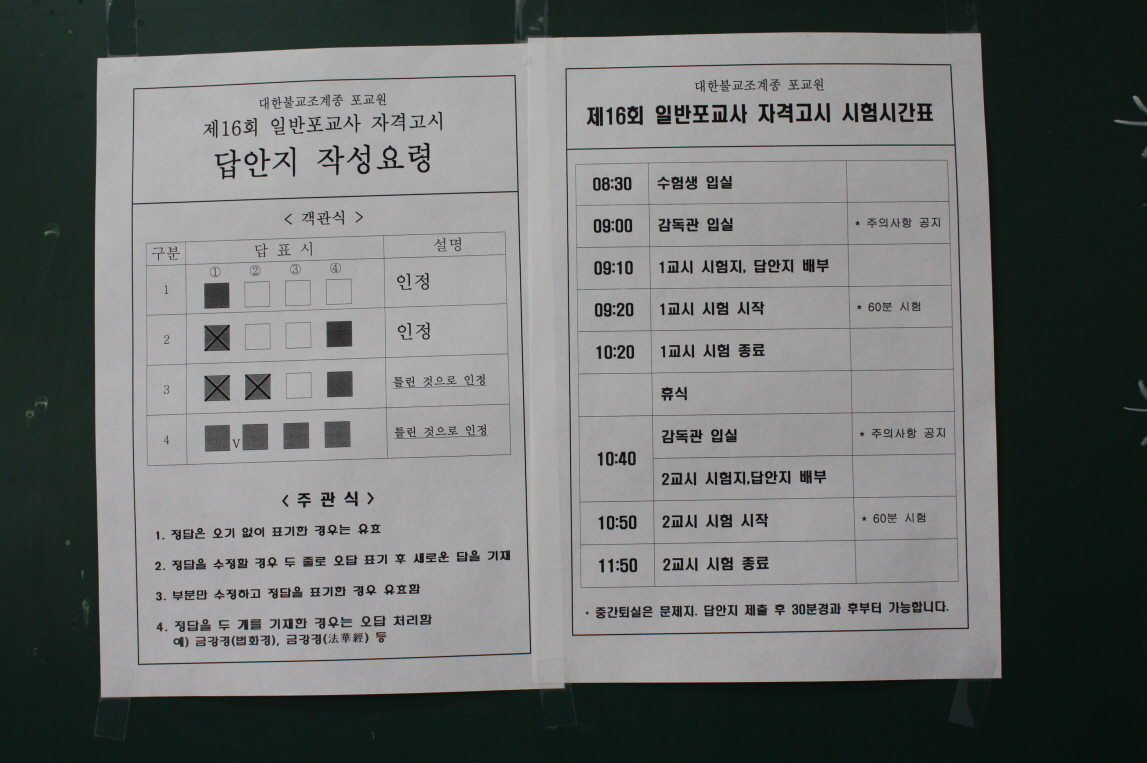 대한불교조계종 포교원
제16회 일반포교사 자격고시
답안지 작성요령
< 객관식 >
구분 답 표 시 설명
① ② ③ ④
1 인정
2 인정
3 틀린 것으로 인정
4 V 틀린 것으로 인정
< 주 관 식 >
1. 정답은 오기 없이 표기한 경우는 유효
2. 정답을 수정할 경우 두 줄로 오답 표기 후 새로운 답을 기재
3. 부분만 수정하고 정답을 표기한 경우 유효함
4. 정답을 두 개를 기재한 경우는 오답 처리함
예) 금강경(법화경), 금강경(法華經) 등
대한불교조계종 포교원
제16회 일반포교사 자격고시 시험시간표
08:30 수험생 입실
09:00 감독관 입실 * 주의사항 공지
09:10 1교시 시험지, 답안지 배부
09:20 1교시 시험 시작 * 60분 시험
10:20 1교시 시험 종료
휴식
10:40 감독관 입실 * 주의사항 공지
2교시 시험지,답안지 배부
10:50 2교시 시험 시작 * 60분 시험
11:50 2교시 시험 종료
· 중간퇴실은 문제지. 답안지 제출 후 30분경과 후부터 가능합니다.